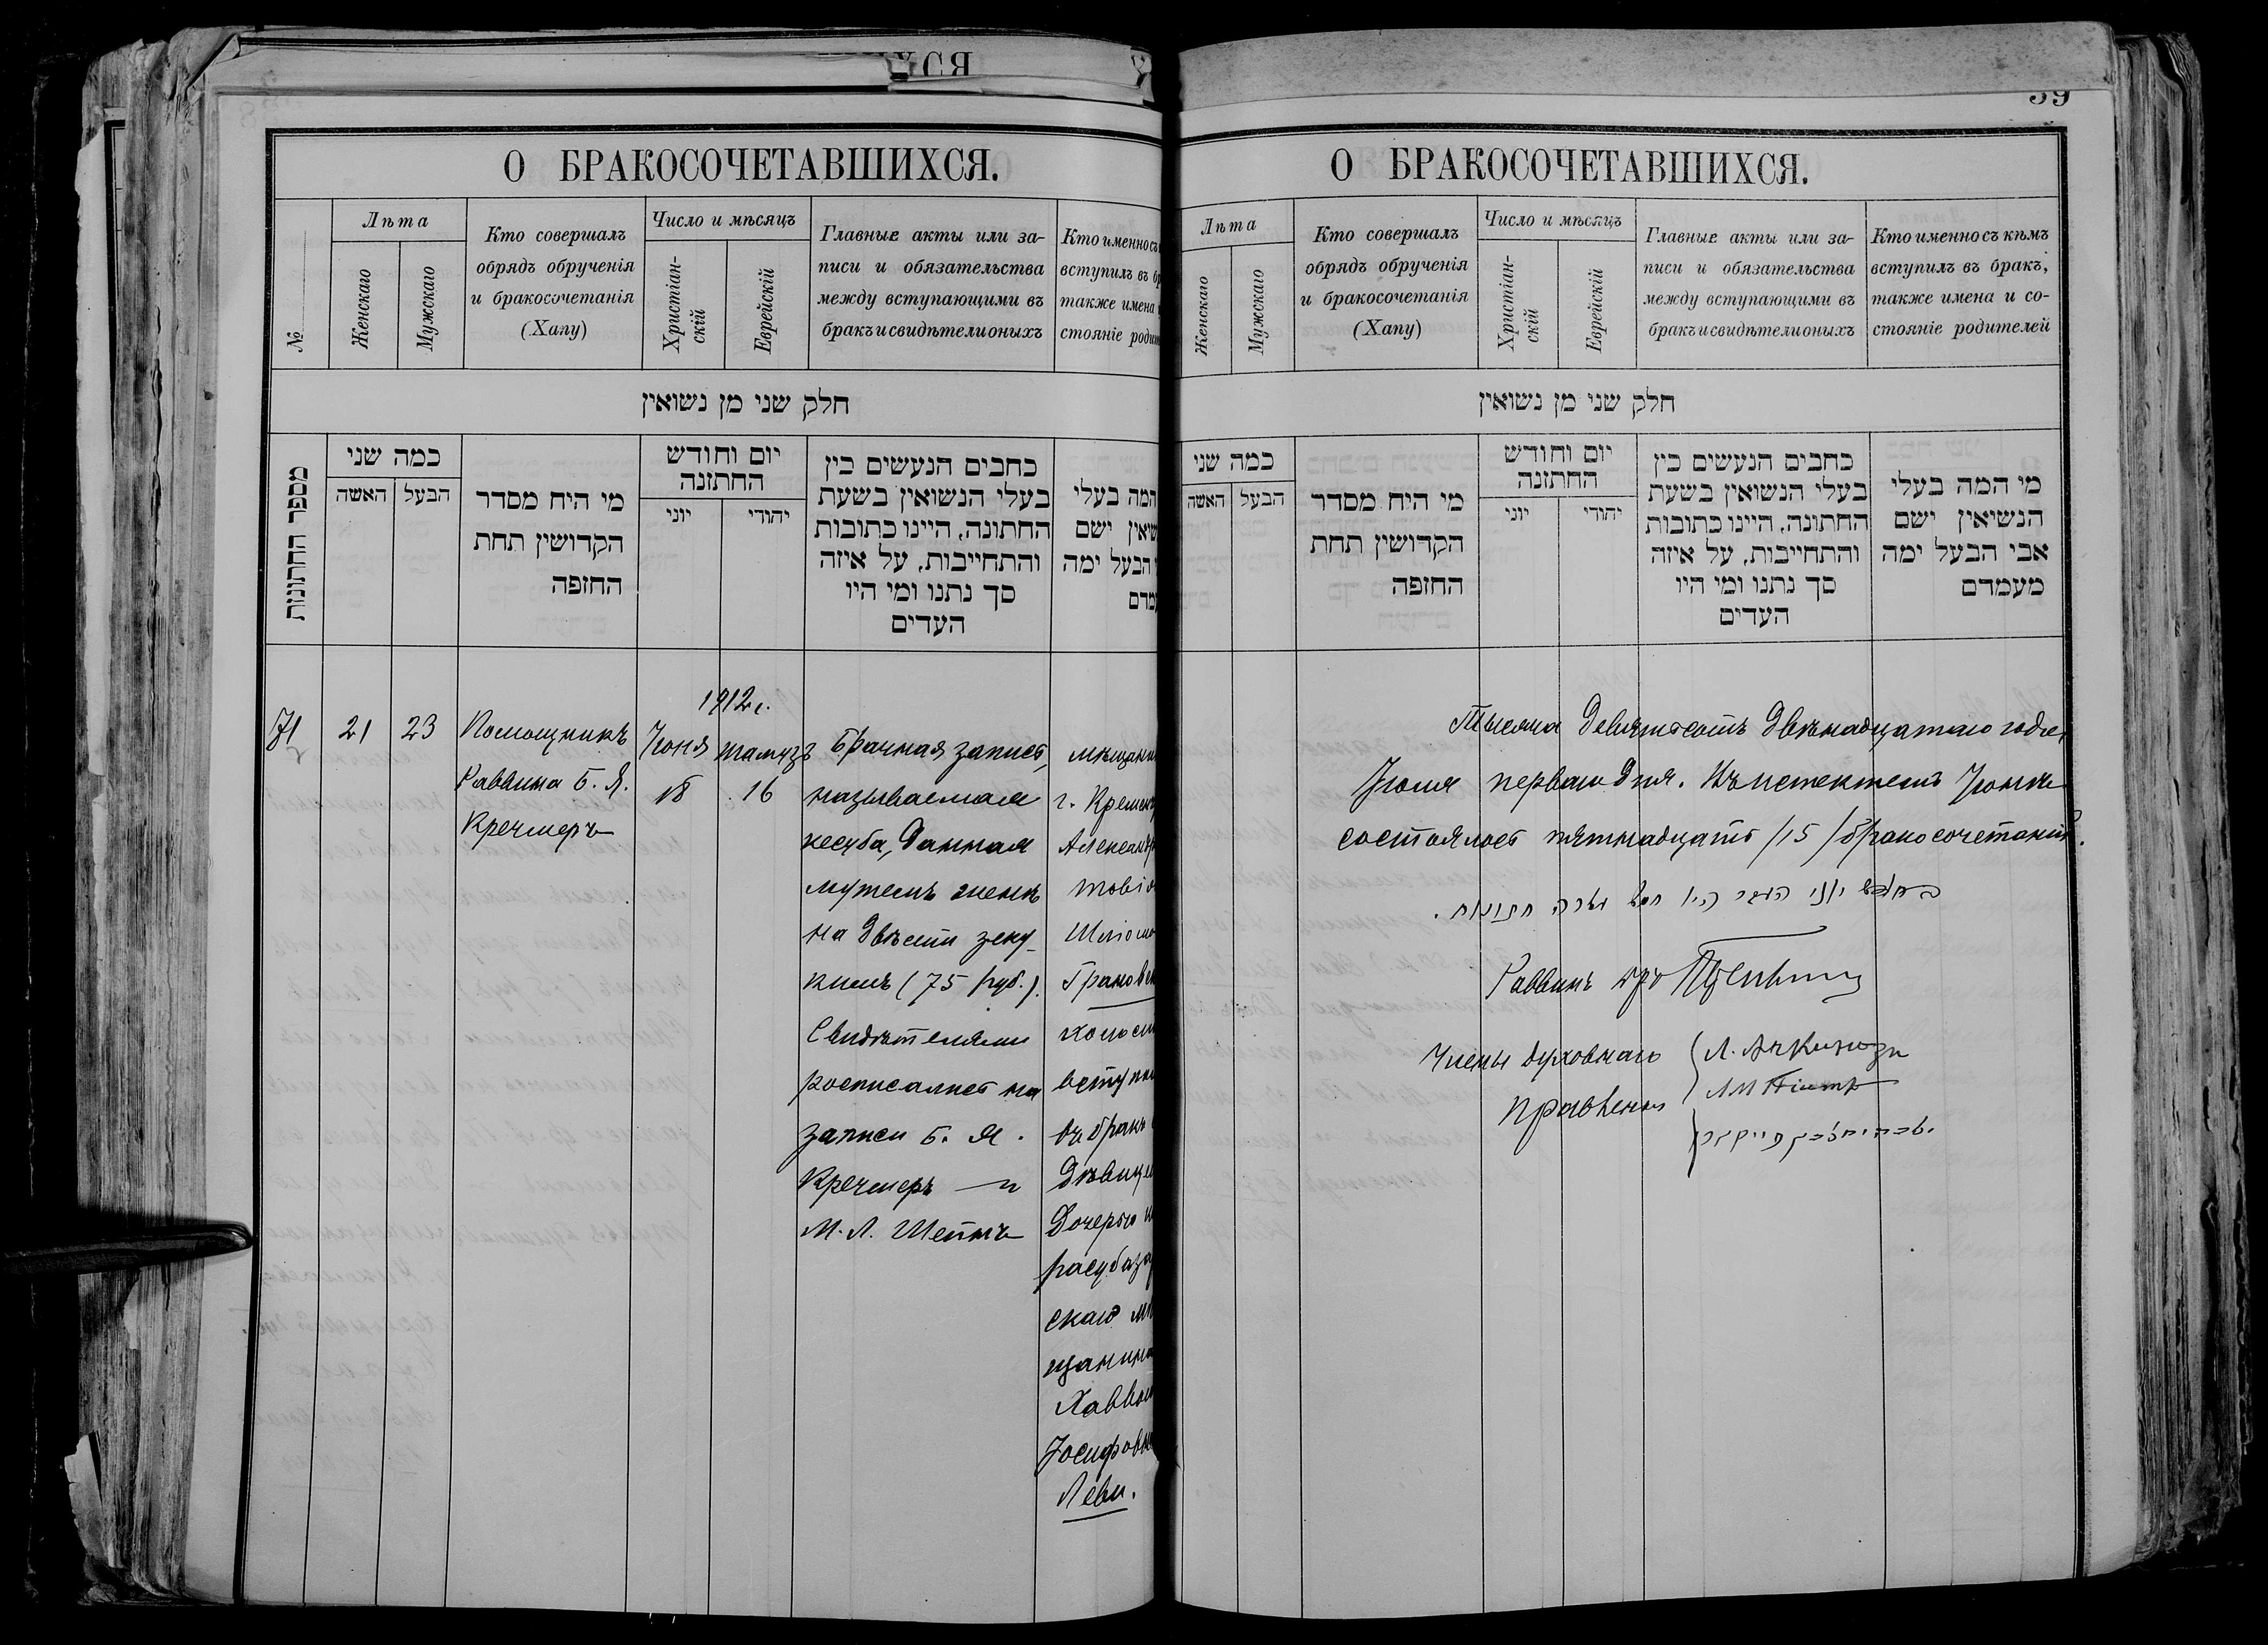 ХСЯ
39
О БРАКОСОЧЕТАВШИХСЯ.
№
Лѣта
Женскаго
Мужскаго
Кто совершалъ
обрядъ обрученія
и бракосочетанія
(Хапу)
Число и мѣсяцъ
Христіан-
скій
Еврейскій
Главные акты или за-
писи и обязательства
между вступающими въ
бракъ и свидѣтели оныхъ
Кто именно съ
вступилъ въ
также имена
стояніе
חלק שני מן נשואין
מספר החתונות
כמה שני
האשה
הבעל
מי היח מסדר
הקדושין תחת
החזפה
יום וחודש
החתזנה
יוני
יהודי
כחבים הנעשים כין
בעלי הנשואין בשעת
החתונה, היינו כתובות
והתחייבות, על איזה
סך נתנו ומי היו
העדים
המה בעלי
ישם
הבעל ימה
71
21
23
Помощникъ
Раввина Б. Я.
Кречмеръ
1912 г.
Іюня
18
Тамузъ
16
Брачная запись,
называемая
кесуба, данная
мужемъ женѣ
на двѣсти зеку-
кимъ (75 руб.).
Свидѣтелями
росписались на
записи Б. Я.
Кречмеръ и
М. Л. Шейнъ
г.
вступи
въ бракъ
Дочерью
расубаза
скаго мѣ
щанина
Леви.
О БРАКОСОЧЕТАВШИХСЯ.
Лѣта
Женскаго
Мужскаго
Кто совершалъ
обрядъ обрученія
и бракосочетанія
(Хапу)
Число и мѣсяцъ
Христіан-
скій
Еврейскій
Главные акты или за-
писи и обязательства
между вступающими въ
бракъ и свидѣтели оныхъ
Кто именно съ кѣмъ
вступилъ въ бракъ,
также имена и со-
стояніе родителей
חלק שני מן נשואין
כמה שני
האשה
הבעל
מי היח מסדר
הקדושין תחת
החזפה
יום וחודש
החתזנה
יוני
יהודי
כחבים הנעשים כין
בעלי הנשואין בשעת
החתונה, היינו כתובות
והתחייבות, על איזה
סך נתנו ומי היו
העדים
מי המה בעלי
הנשיאין ישם
אבי הבעל ימה
מעמדם
Тысяча девятьсотъ двѣнадцатаго года,
Іюля перваго дня. Въ истекшемъ Іюнѣ
состоялось пятнадцать /15/ бракосочетаній.
בחדש יוני העבר היו חמש עשרה חתונות.
Раввинъ
Члены духовнаго
правленія